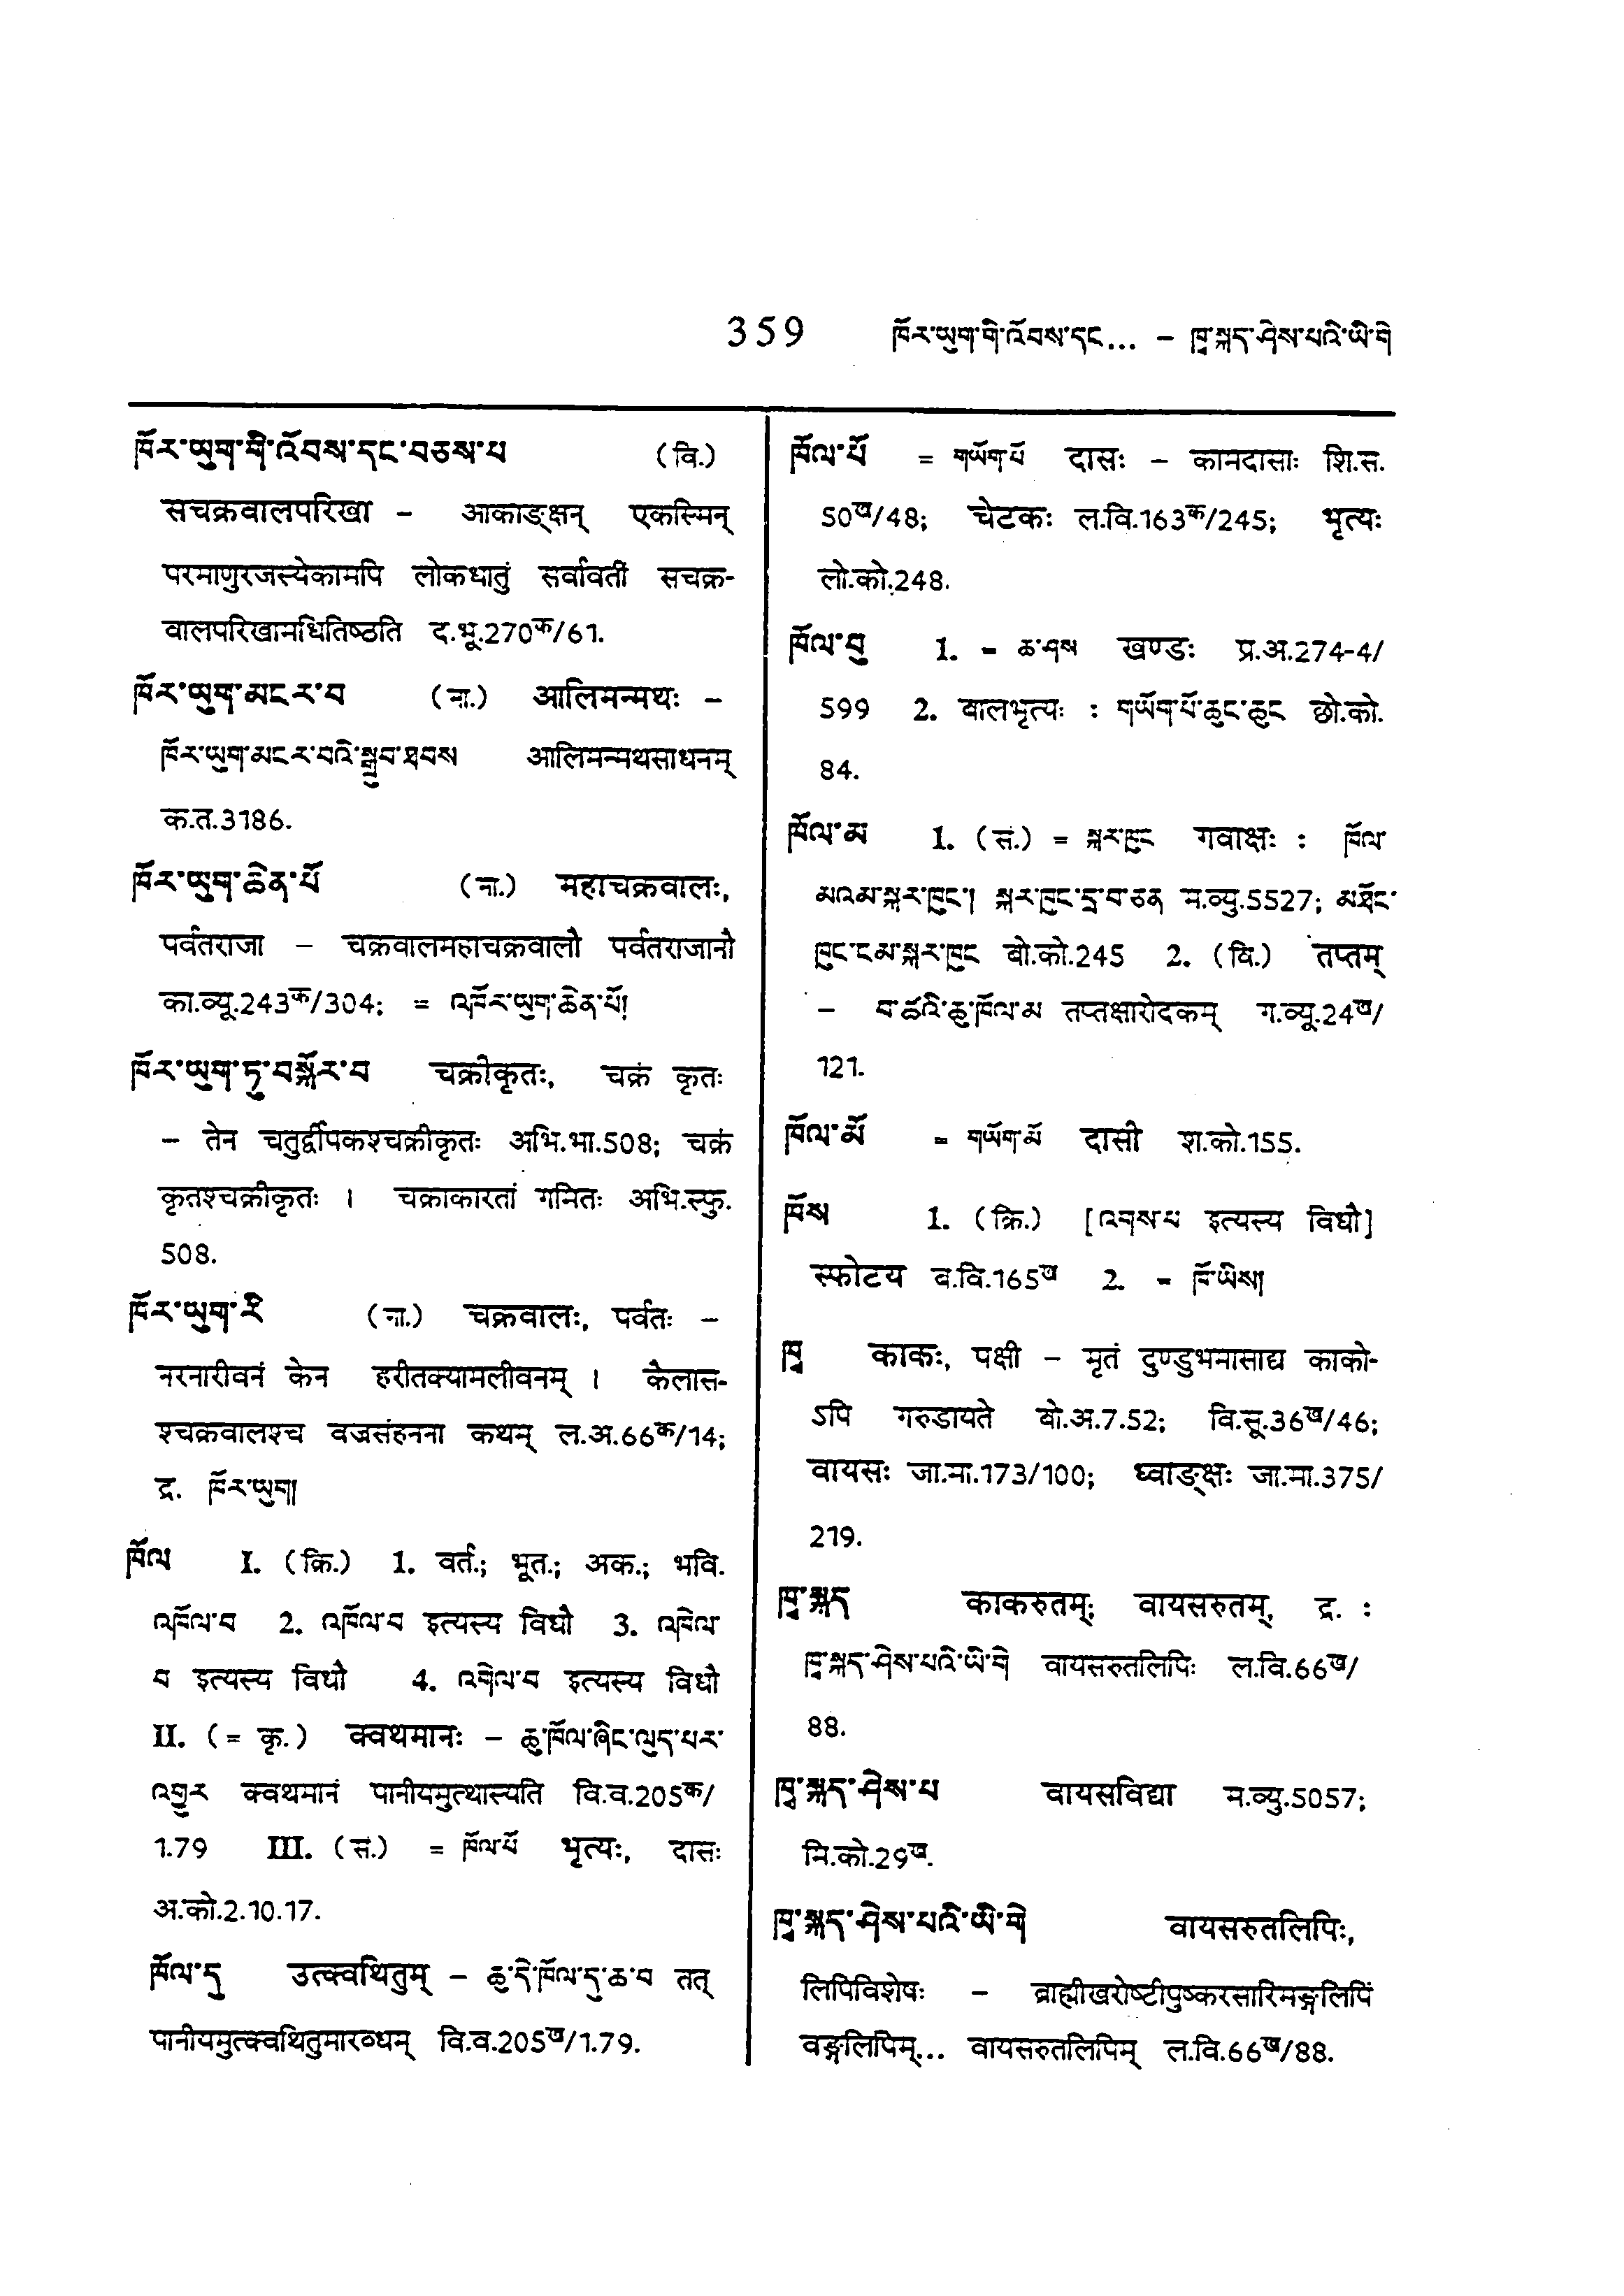 359 ཁོར་ཡུག་གི་འོབས་དང... – ཁྭ་སྐད་ཤེས་པའི་ཡི་གེ
ཁོར་ཡུག་གི་འོབས་དང་བཅས་པ (वि.)
सचक्रवालपरिखा – आकाङ्क्षन् एकस्मिन्
परमाणुरजस्येकामपि लोकधातुं सर्वावतीं सचक्र-
वालपरिखामधितिष्ठति द.भू.270क/61.
ཁོར་ཡུག་མངར་བ (ना.) आलिमन्मथः –
ཁོར་ཡུག་མངར་བའི་སྒྲུབ་ཐབས आलिमन्मथसाधनम्
क.त.3186.
ཁོར་ཡུག་ཆེན་པོ (ना.) महाचक्रवालः,
पर्वतराजा – चक्रवालमहाचक्रवालौ पर्वतराजानौ
का.व्यू.243क/304; = འཁོར་ཡུག་ཆེན་པོ།
ཁོར་ཡུག་ཏུ་བསྐོར་བ चक्रीकृतः, चक्रं कृतः
– तेन चतुर्द्वीपकश्चक्रीकृतः अभि.भा.508; चक्रं
कृतश्चक्रीकृतः । चक्राकारतां गमितः अभि.स्फु.
508.
ཁོར་ཡུག་རི (ना.) चक्रवालः, पर्वतः –
नरनारीवनं केन हरीतक्यामलीवनम् । कैलास-
श्चक्रवालश्च वज्रसंहनना कथम् ल.अ.66क/14;
द्र. ཁོར་ཡུག།
ཁོལ I. (क्रि.) 1. वर्त.; भूत.; अक.; भवि.
འཁོལ་བ 2. འཁོལ་བ इत्यस्य विधौ 3. འཁེལ་
བ इत्यस्य विधौ 4. འགེལ་བ इत्यस्य विधौ
II. (= कृ.) क्वथमानः – ཆུ་ཁོལ་ཞིང་ལུད་པར་
འགྱུར क्वथमानं पानीयमुत्थास्यति वि.व.205क/
1.79 III. (सं.) = ཁོལ་པོ भृत्यः, दासः
अ.को.2.10.17.
ཁོལ་དུ उत्क्वथितुम् – ཆུ་དེ་ཁོལ་དུ་ཆ་བ तत्
पानीयमुत्क्वथितुमारब्धम् वि.व.205ख/1.79.
ཁོལ་པོ = གཡོག་པོ दासः – कामदासाः शि.स.
50ख/48; चेटकः ल.वि.163क/245; भृत्यः
लो.को.248.
ཁོལ་བུ 1. = ཆ་ཤས खण्डः प्र.अ.274-4/
599 2. बालभृत्यः : གཡོག་པོ་ཆུང་ཆུང छो.को.
84.
ཁོལ་མ 1. (सं.) = སྐར་ཁུང गवाक्षः : ཁོལ་
མའམ་སྐར་ཁུང་། སྐར་ཁུང་དྲ་བ་ཅན म.व्यु.5527; མཐོང་
ཁུང་ངམ་སྐར་ཁུང बो.को.245 2. (वि.) तप्तम्
– བ་ཚའི་ཆུ་ཁོལ་མ तप्तक्षारोदकम् ग.व्यू.24ख/
121.
ཁོལ་མོ = གཡོག་མོ दासी श.को.155.
ཁོས 1. (क्रि.) [འགས་པ इत्यस्य विधौ]
स्फोटय व.वि.165ख 2. = ཁོ་ཡིས།
ཁྭ काकः, पक्षी – मृतं दुण्डुभमासाद्य काको-
ऽपि गरुडायते बो.अ.7.52; वि.सू.36ख/46;
वायसः जा.मा.173/100; ध्वाङ्क्षः जा.मा.375/
219.
ཁྭ་སྐད काकरुतम्; वायसरुतम्, द्र. :
ཁྭ་སྐད་ཤེས་པའི་ཡི་གེ वायसरुतलिपिः ल.वि.66ख/
88.
ཁྭ་སྐད་ཤེས་པ वायसविद्या म.व्यु.5057;
मि.को.29ख.
ཁྭ་སྐད་ཤེས་པའི་ཡི་གེ वायसरुतलिपिः,
लिपिविशेषः – ब्राह्मीखरोष्टीपुष्करसारिमङ्गलिपिं
वङ्गलिपिम्... वायसरुतलिपिम् ल.वि.66ख/88.